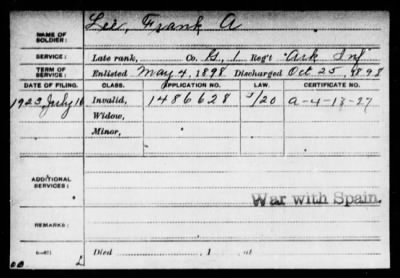 NAME OF SOLDIER: Lee, Frank A
SERVICE: Late rank, Co. G, 1 Reg't Ark Inf
TERM OF SERVICE: Enlisted May 4, 1898 Discharged Oct 25, 1898
DATE OF FILING. CLASS. APPLICATION NO. LAW. CERTIFICATE NO.
1923 July 16 Invalid, 1486628 A-4-18-27
Widow,
Minor,
ADDITIONAL SERVICES:
War with Spain.
REMARKS:
Died , 1 , at